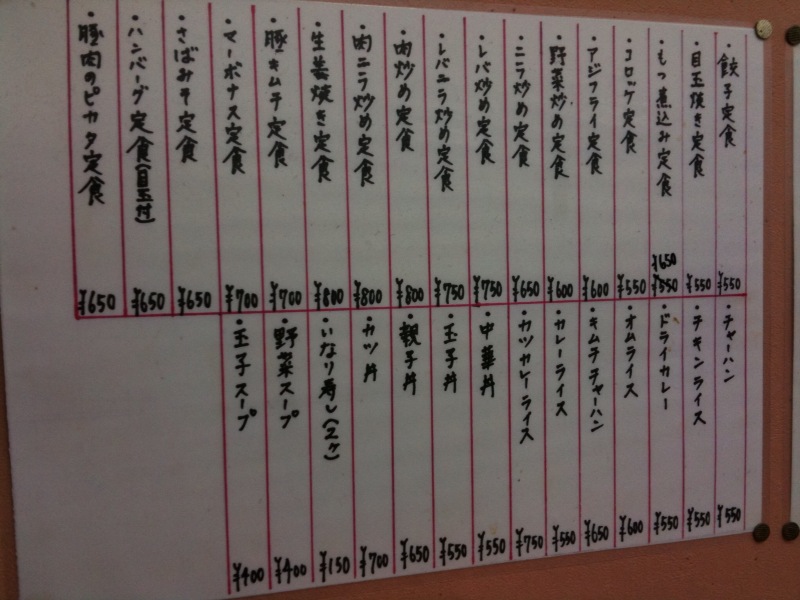 ・餃子定食 ¥550
・目玉焼き定食 ¥550
・もつ煮込み定食 ¥650 ¥550
・コロッケ定食 ¥550
・アジフライ定食 ¥600
・野菜炒め定食 ¥600
・ニラ炒め定食 ¥650
・レバ炒め定食 ¥750
・レバニラ炒め定食 ¥750
・肉炒め定食 ¥800
・肉ニラ炒め定食 ¥800
・生姜焼き定食 ¥800
・豚キムチ定食 ¥700
・マーボナス定食 ¥700
・さばみそ定食 ¥650
・ハンバーグ定食(目玉付) ¥650
・豚肉のピカタ定食 ¥650
・チャーハン ¥550
・チキンライス ¥550
・ドライカレー ¥550
・オムライス ¥600
・キムチチャーハン ¥650
・カレーライス ¥550
・カツカレーライス ¥750
・中華丼 ¥550
・玉子丼 ¥550
・親子丼 ¥650
・カツ丼 ¥700
・いなり寿し(2ケ) ¥150
・野菜スープ ¥400
・玉子スープ ¥400